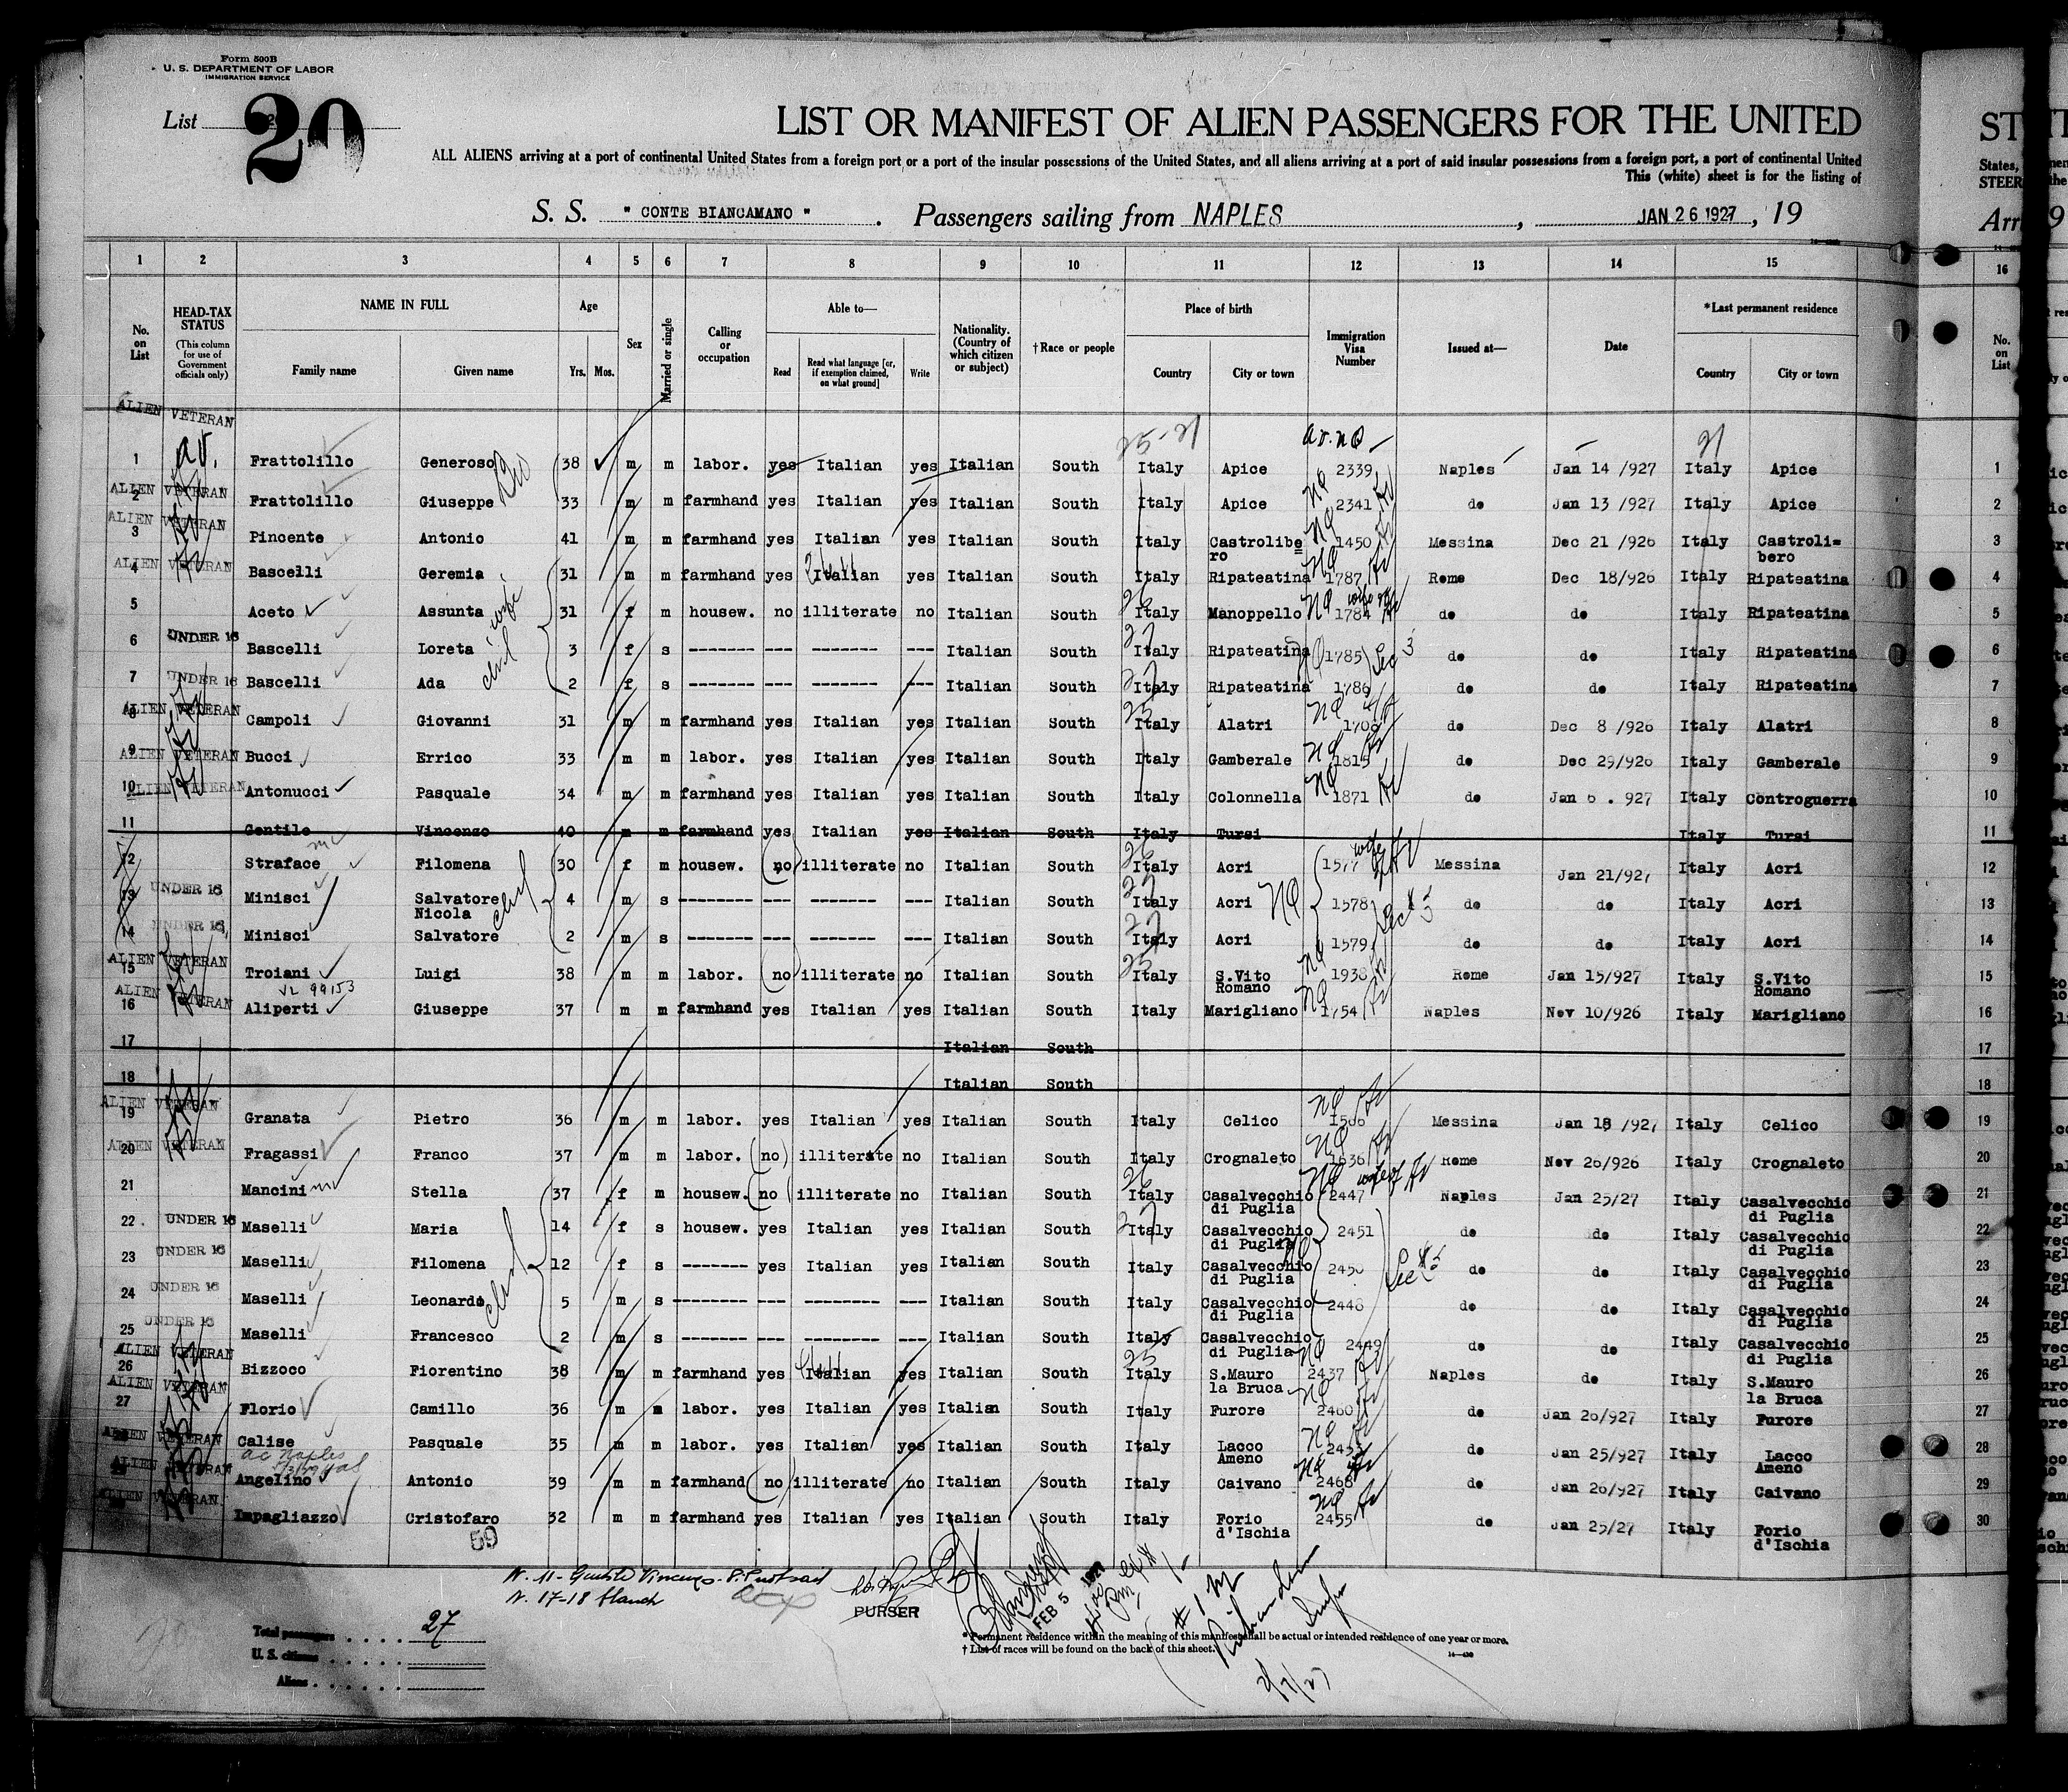 Form 500B
U. S. DEPARTMENT OF LABOR
IMMIGRATION SERVICE
List 20
LIST OR MANIFEST OF ALIEN PASSENGERS FOR THE UNITED
ALL ALIENS arriving at a port of continental United States from a foreign port or a port of the insular possessions of the United States, and all aliens arriving at a port of said insular possessions from a foreign port, a port of continental United
This (white) sheet is for the listing of
S. S. " CONTE BIANCAMANO " . Passengers sailing from NAPLES , JAN 26 1927 , 19
1 2 3 4 5 6 7 8 9 10 11 12 13 14 15
No. on List HEAD-TAX STATUS (This column for use of Government officials only) NAME IN FULL Family name Given name Age Yrs. Mos. Sex Married or single Calling or occupation Able to— Read Read what language [or, if exemption claimed, on what ground] Write Nationality. (Country of which citizen or subject) †Race or people Place of birth Country City or town Immigration Visa Number Issued at— Date *Last permanent residence Country City or town
ALIEN VETERAN
1 Frattolillo Generoso 38 m m labor. yes Italian yes Italian South Italy Apice 2339 Naples Jan 14 /927 Italy Apice 1
ALIEN VETERAN
2 Frattolillo Giuseppe 33 m m farmhand yes Italian yes Italian South Italy Apice 2341 do Jan 13 /927 Italy Apice 2
ALIEN VETERAN
3 Pincente Antonio 41 m m farmhand yes Italian yes Italian South Italy Castrolibe=ro 1450 Messina Dec 21 /926 Italy Castroli=bero 3
ALIEN VETERAN
4 Bascelli Geremia 31 m m farmhand yes Italian yes Italian South Italy Ripateatina 1787 Rome Dec 18/926 Italy Ripateatina 4
5 Aceto Assunta wife 31 f m housew. no illiterate no Italian South Italy Manoppello 1784 do do Italy Ripateatina 5
UNDER 16
6 Bascelli Loreta child 3 f s Italian South Italy Ripateatina 1785 Sec 3 do do Italy Ripateatina 6
UNDER 16
7 Bascelli Ada 2 f s Italian South Italy Ripateatina 1786 do do Italy Ripateatina 7
ALIEN VETERAN
8 Campoli Giovanni 31 m m farmhand yes Italian yes Italian South Italy Alatri do Dec 8 /926 Italy Alatri 8
ALIEN VETERAN
9 Bucci Errico 33 m m labor. yes Italian yes Italian South Italy Gamberale 1815 do Dec 29/926 Italy Gamberale 9
ALIEN VETERAN
10 Antonucci Pasquale 34 m m farmhand yes Italian yes Italian South Italy Colonnella 1871 do Jan 6 . 927 Italy Controguerra 10
11 Gentile Vincenzo 40 m m farmhand yes Italian yes Italian South Italy Tursi Italy Tursi 11
12 Straface Filomena 30 f m housew. no illiterate no Italian South Italy Acri 1577 wife Messina Jan 21/927 Italy Acri 12
UNDER 16
13 Minisci Salvatore Nicola child 4 m s Italian South Italy Acri 1578 do do Italy Acri 13
UNDER 16
14 Minisci Salvatore 2 m s Italian South Italy Acri 1579 do do Italy Acri 14
ALIEN VETERAN
15 Troiani Luigi 38 m m labor. no illiterate no Italian South Italy S.Vito Romano 1938 Rome Jan 15/927 Italy S.Vito Romano 15
ALIEN VETERAN
16 Aliperti Giuseppe 37 m m farmhand yes Italian yes Italian South Italy Marigliano 1754 Naples Nov 10/926 Italy Marigliano 16
17 Italian South 17
18 Italian South 18
ALIEN VETERAN
19 Granata Pietro 36 m m labor. yes Italian yes Italian South Italy Celico Messina Jan 18 /927 Italy Celico 19
ALIEN VETERAN
20 Fragassi Franco 37 m m labor. no illiterate no Italian South Italy Crognaleto 1636 Rome Nov 26/926 Italy Crognaleto 20
21 Mancini Stella 37 f m housew. no illiterate no Italian South Italy Casalvecchio di Puglia 2447 wife of Naples Jan 25/27 Italy Casalvecchio di Puglia 21
22 UNDER 16 Maselli Maria 14 f s housew. yes Italian yes Italian South Italy Casalvecchio di Puglia 2451 do do Italy Casalvecchio di Puglia 22
23 UNDER 16 Maselli Filomena 12 f s yes Italian yes Italian South Italy Casalvecchio di Puglia 2450 do do Italy Casalvecchio di Puglia 23
24 UNDER 16 Maselli Leonardo child 5 m s Italian South Italy Casalvecchio di Puglia 2448 do do Italy Casalvecchio di Puglia 24
25 UNDER 16 Maselli Francesco 2 m s Italian South Italy Casalvecchio di Puglia 2449 do do Italy Casalvecchio di Puglia 25
ALIEN VETERAN
26 Bizzoco Fiorentino 38 m m farmhand yes Italian yes Italian South Italy S.Mauro la Bruca 2437 Naples do Italy S.Mauro la Bruca 26
ALIEN VETERAN
27 Florio Camillo 36 m m labor. yes Italian yes Italian South Italy Furore 2460 do Jan 26/927 Italy Furore 27
ALIEN VETERAN
Calise Pasquale 35 m m labor. yes Italian yes Italian South Italy Lacco Ameno do Jan 25/927 Italy Lacco Ameno 28
ALIEN VETERAN
Angelino Antonio 39 m m farmhand no illiterate no Italian South Italy Caivano 2468 do Jan 26/927 Italy Caivano 29
ALIEN VETERAN
Impagliazzo Cristofaro 32 m m farmhand yes Italian yes Italian South Italy Forio d'Ischia 2455 do Jan 25/27 Italy Forio d'Ischia 30
59
PURSER
FEB 5
Total passengers . . . . 27
U. S. citizens . . . . .
Aliens . . . . .
* Permanent residence within the meaning of this manifest shall be actual or intended residence of one year or more.
† List of races will be found on the back of this sheet.
2/7/27